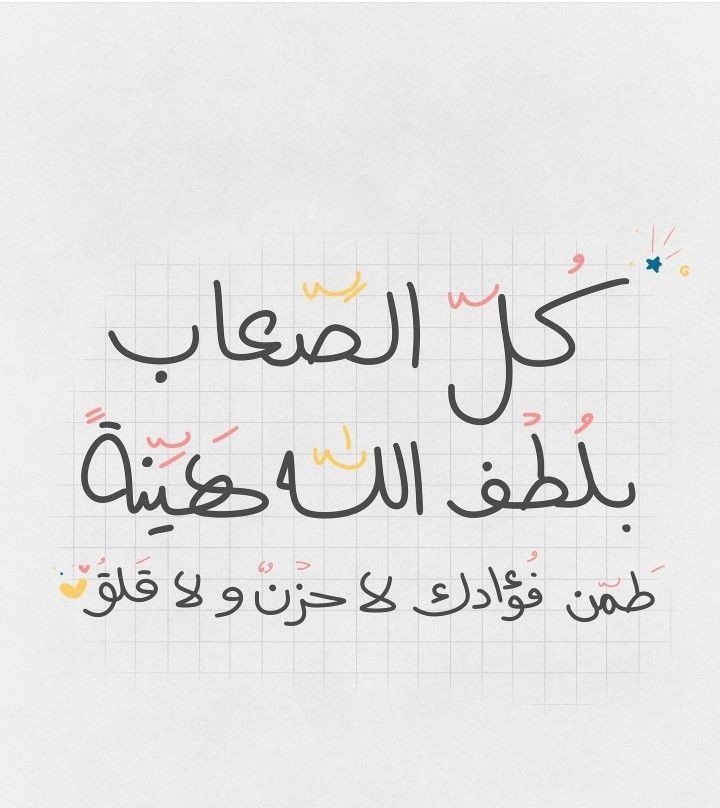 كُلّ الصِّعاب
بلُطْفِ اللّٰه هَيِّنةً
طَمّن فُؤادك لا حزْنٌ و لا قَلقُ